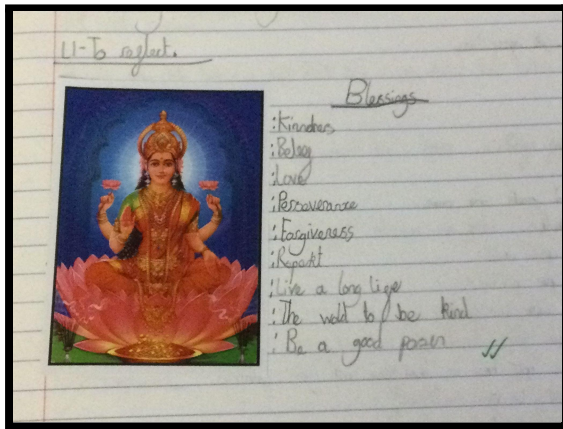 LI-To reglect.
Blessings
:Kinndness
:Beleg
:Love
:Perseverance
:Forgiveness
:Repeckt
:Live a long lige
:The wold to be kind
:Be a good poson